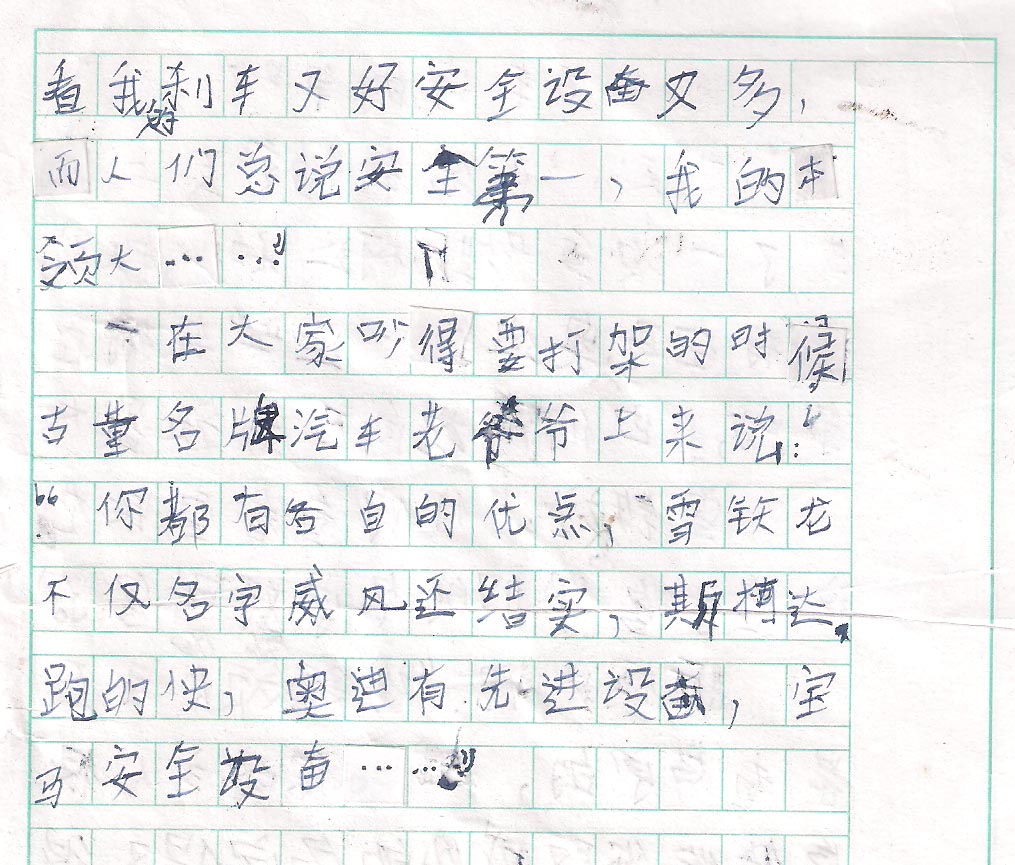 看我的刹车又好安全设备又多，
而人们总说安全第一，我的本
领大……”
在大家吵得要打架的时候
古董名牌汽车老爷爷上来说：
“你都有各自的优点，雪铁龙
不仅名字威风还结实，斯达
跑的快，奥迪有先进设备，宝
马安全设备……”